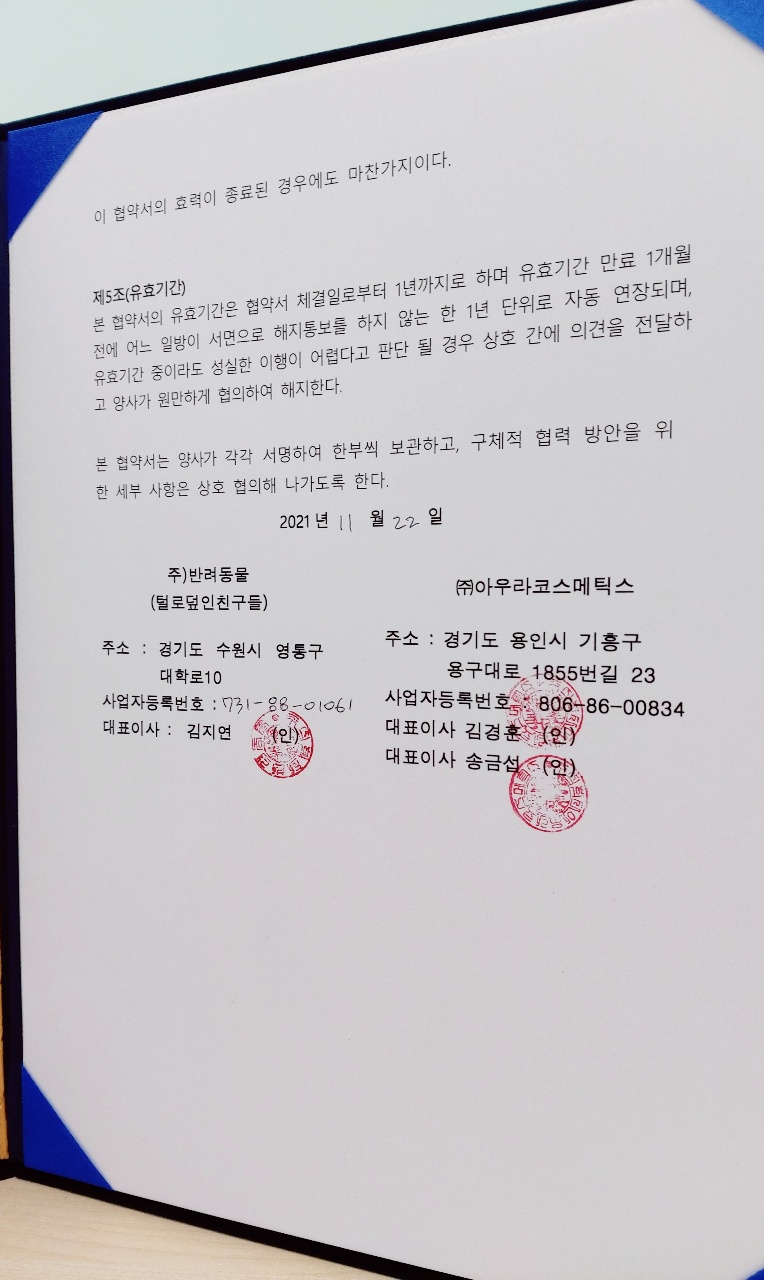 이 협약서의 효력이 종료된 경우에도 마찬가지이다.
제5조(유효기간)
본 협약서의 유효기간은 협약서 체결일로부터 1년까지로 하며 유효기간 만료 1개월
전에 어느 일방이 서면으로 해지통보를 하지 않는 한 1년 단위로 자동 연장되며,
유효기간 중이라도 성실한 이행이 어렵다고 판단 될 경우 상호 간에 의견을 전달하
고 양사가 원만하게 협의하여 해지한다.
본 협약서는 양사가 각각 서명하여 한부씩 보관하고, 구체적 협력 방안을 위
한 세부 사항은 상호 협의해 나가도록 한다.
2021 년 11 월 22 일
주)반려동물
(털로덮인친구들)
주소 : 경기도 수원시 영통구
대학로10
사업자등록번호 : 731-88-01061
대표이사 : 김지연 (인)
㈜아우라코스메틱스
주소 : 경기도 용인시 기흥구
용구대로 1855번길 23
사업자등록번호 : 806-86-00834
대표이사 김경훈 (인)
대표이사 송금섭 (인)